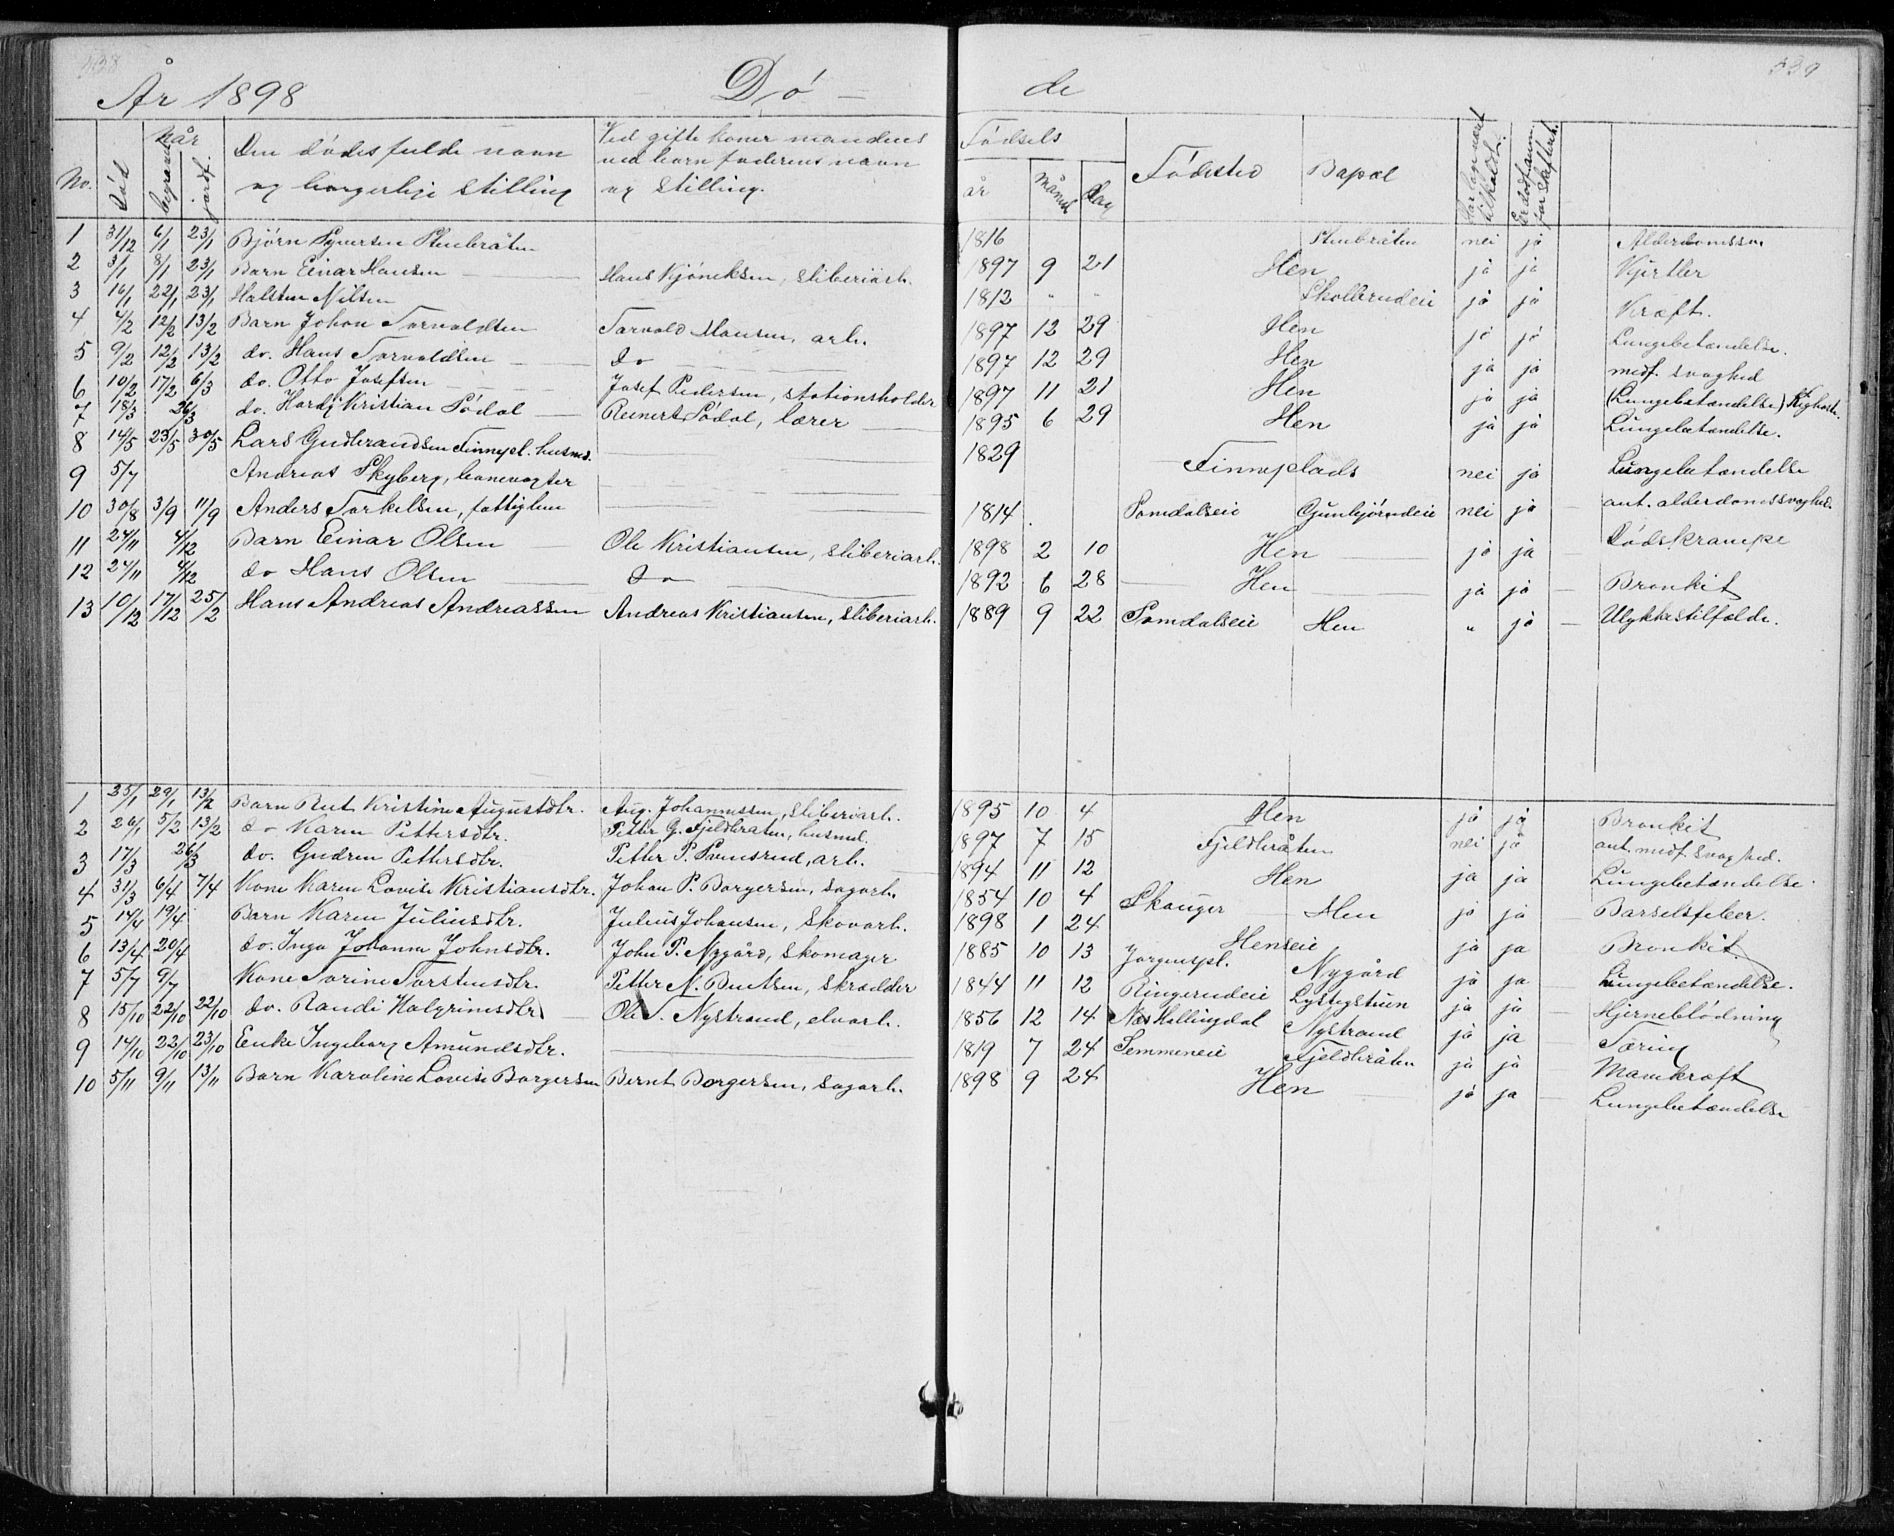 538
År 1898 Dø-
No. Når Den dødes fulde navn Ved gifte koner mandens
Død begravet jordf. og borgerlige stilling ved barn faderens navn
og stilling.
1 31/12 6/1 23/1 Bjørn Syversen Stenbråten
2 3/1 8/1 23/1 Barn Einar Hansen Hans Kjøneksen, sliberiarb.
3 16/1 22/1 23/1 Halsten Nilsen
4 4/2 12/2 13/2 Barn Johan Torvaldsen Torvald Hansen, arb.
5 9/2 12/2 13/2 do. Hans Torvaldsen do
6 10/2 17/2 6/3 do. Otto Josefsen Josef Pedersen, stationsholder
7 18/3 26/3 do. Hardy Kristian Södal Reinert Södal, lærer
8 14/5 23/5 30/5 Lars Gudbrandsen Finnepl. husmd.
9 5/7 Andreas Skyberg, banevogter
10 30/8 3/9 11/9 Anders Torkelsen, fattiglem
11 27/11 4/12 Barn Einar Olsen Ole Kristiansen, sliberiarb.
12 27/11 4/12 do Hans Olsen do
13 10/12 17/12 25/2 Hans Andreas Andreassen Andreas Kristiansen, sliberiarb.
1 23/1 29/1 13/2 Barn Rut Kristine Augustdtr. Aug. Johannessen, sliberiarb.
2 26/1 5/2 13/2 do Karen Pettersdtr. Petter G. Fjeldbråten, husmd.
3 17/3 26/3 do. Gudrun Pettersdtr. Petter P. arb.
4 31/3 6/4 7/4 Kone Karen Lovise Kristiansdtr. Johan P. Borgersen, sagarb.
5 14/4 19/4 Barn Karen Juliusdtr. Julius Johansen, skovarb.
6 13/4 20/4 do. Inga Johanna Johnsdtr. John P. Nygård, skomager
7 5/7 9/7 Kone Torine Torstensdtr. Petter N. Bentsen, skrædder
8 15/10 22/10 22/10 do. Randi Halgrimsdtr Ole T. Nystrand, elvarb.
9 14/10 22/10 23/10 Enke Ingeborg Amundsdtr.
10 5/11 9/11 13/11 Barn Karoline Lovise Borgersen Bernt Borgersen, sagarb.
de 539
Fødsels Fødested Bopæl
år måned dag
1816 Stenbråten nei ja Alderdomssv.
1897 9 21 Hen ja ja Kjertler
1812 " " Skollerudeie ja ja Kræft.
1897 12 29 Hen ja ja Lungebetændelse.
1897 12 29 Hen ja ja medf. svaghed
1897 11 21 Hen ja ja (Lungebetændelse) Kighoste.
1895 6 29 Hen ja ja Lungebetændelse.
1829 Finneplads nei ja Lungebetændelse
1814 Somdalseie Gunbjörudeie nei ja ant. alderdomssvaghed.
1898 2 10 Hen ja ja Dødskrampe
1892 6 28 Hen ja ja Bronkit
1889 9 22 Somdalseie Hen " ja Ulykkestilfælde.
1895 10 4 Hen ja ja Bronkit
1897 7 15 Fjeldbråten nei ja ant. medf. svaghed.
1894 11 12 Hen ja ja Lungebetændelse.
1854 10 4 Skauger Hen ja ja Barselsfeber.
1898 1 24 Henseie ja ja Bronkit
1885 10 13 Jorgenspl. Nygård ja ja Lungebetændelse.
1844 11 12 Ringerudeie Lystigstuen ja ja Hjerneblödning
1856 12 14 Næs Hallingdal Nystrand ja ja Tæring
1819 7 24 Semmeneie Fjeldbråten ja ja Mavekræft
1898 9 24 Hen ja ja Lungebetændelse